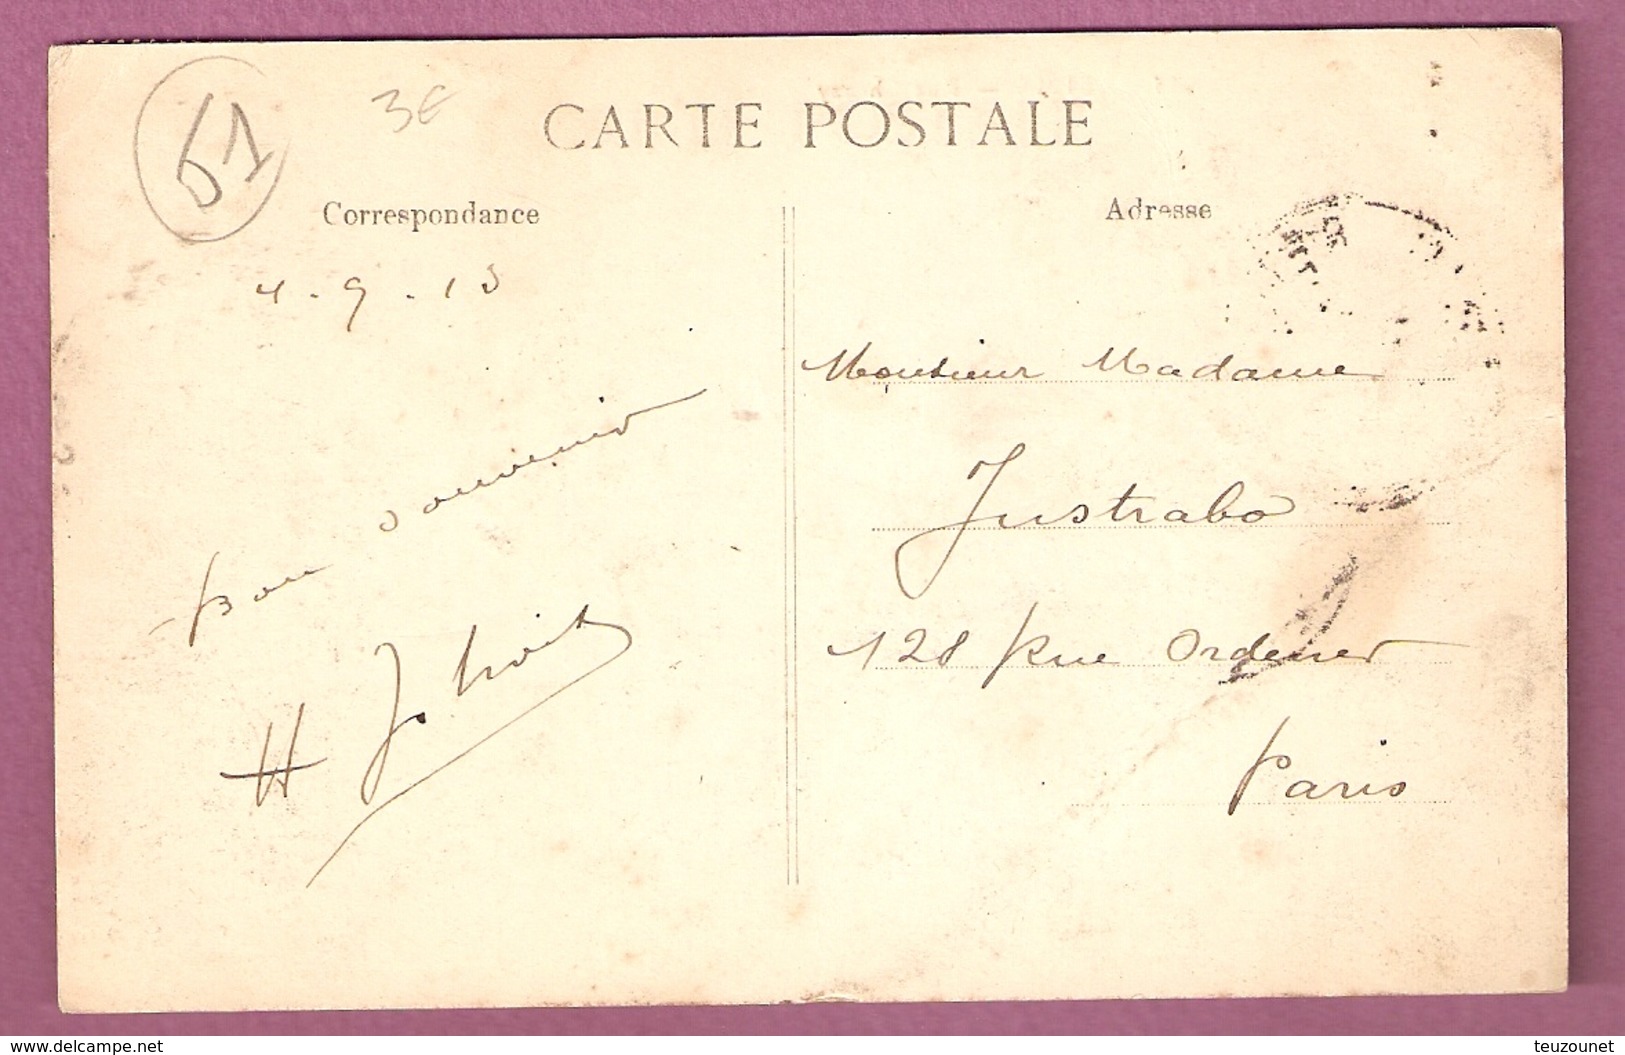 61
3€
CARTE POSTALE
Correspondance
Adresse
4.9.13
Bon souvenir
H J
Monsieur Madame
Justrabo
128 Rue Ordener
Paris
www.delcampe.net
teuzounet